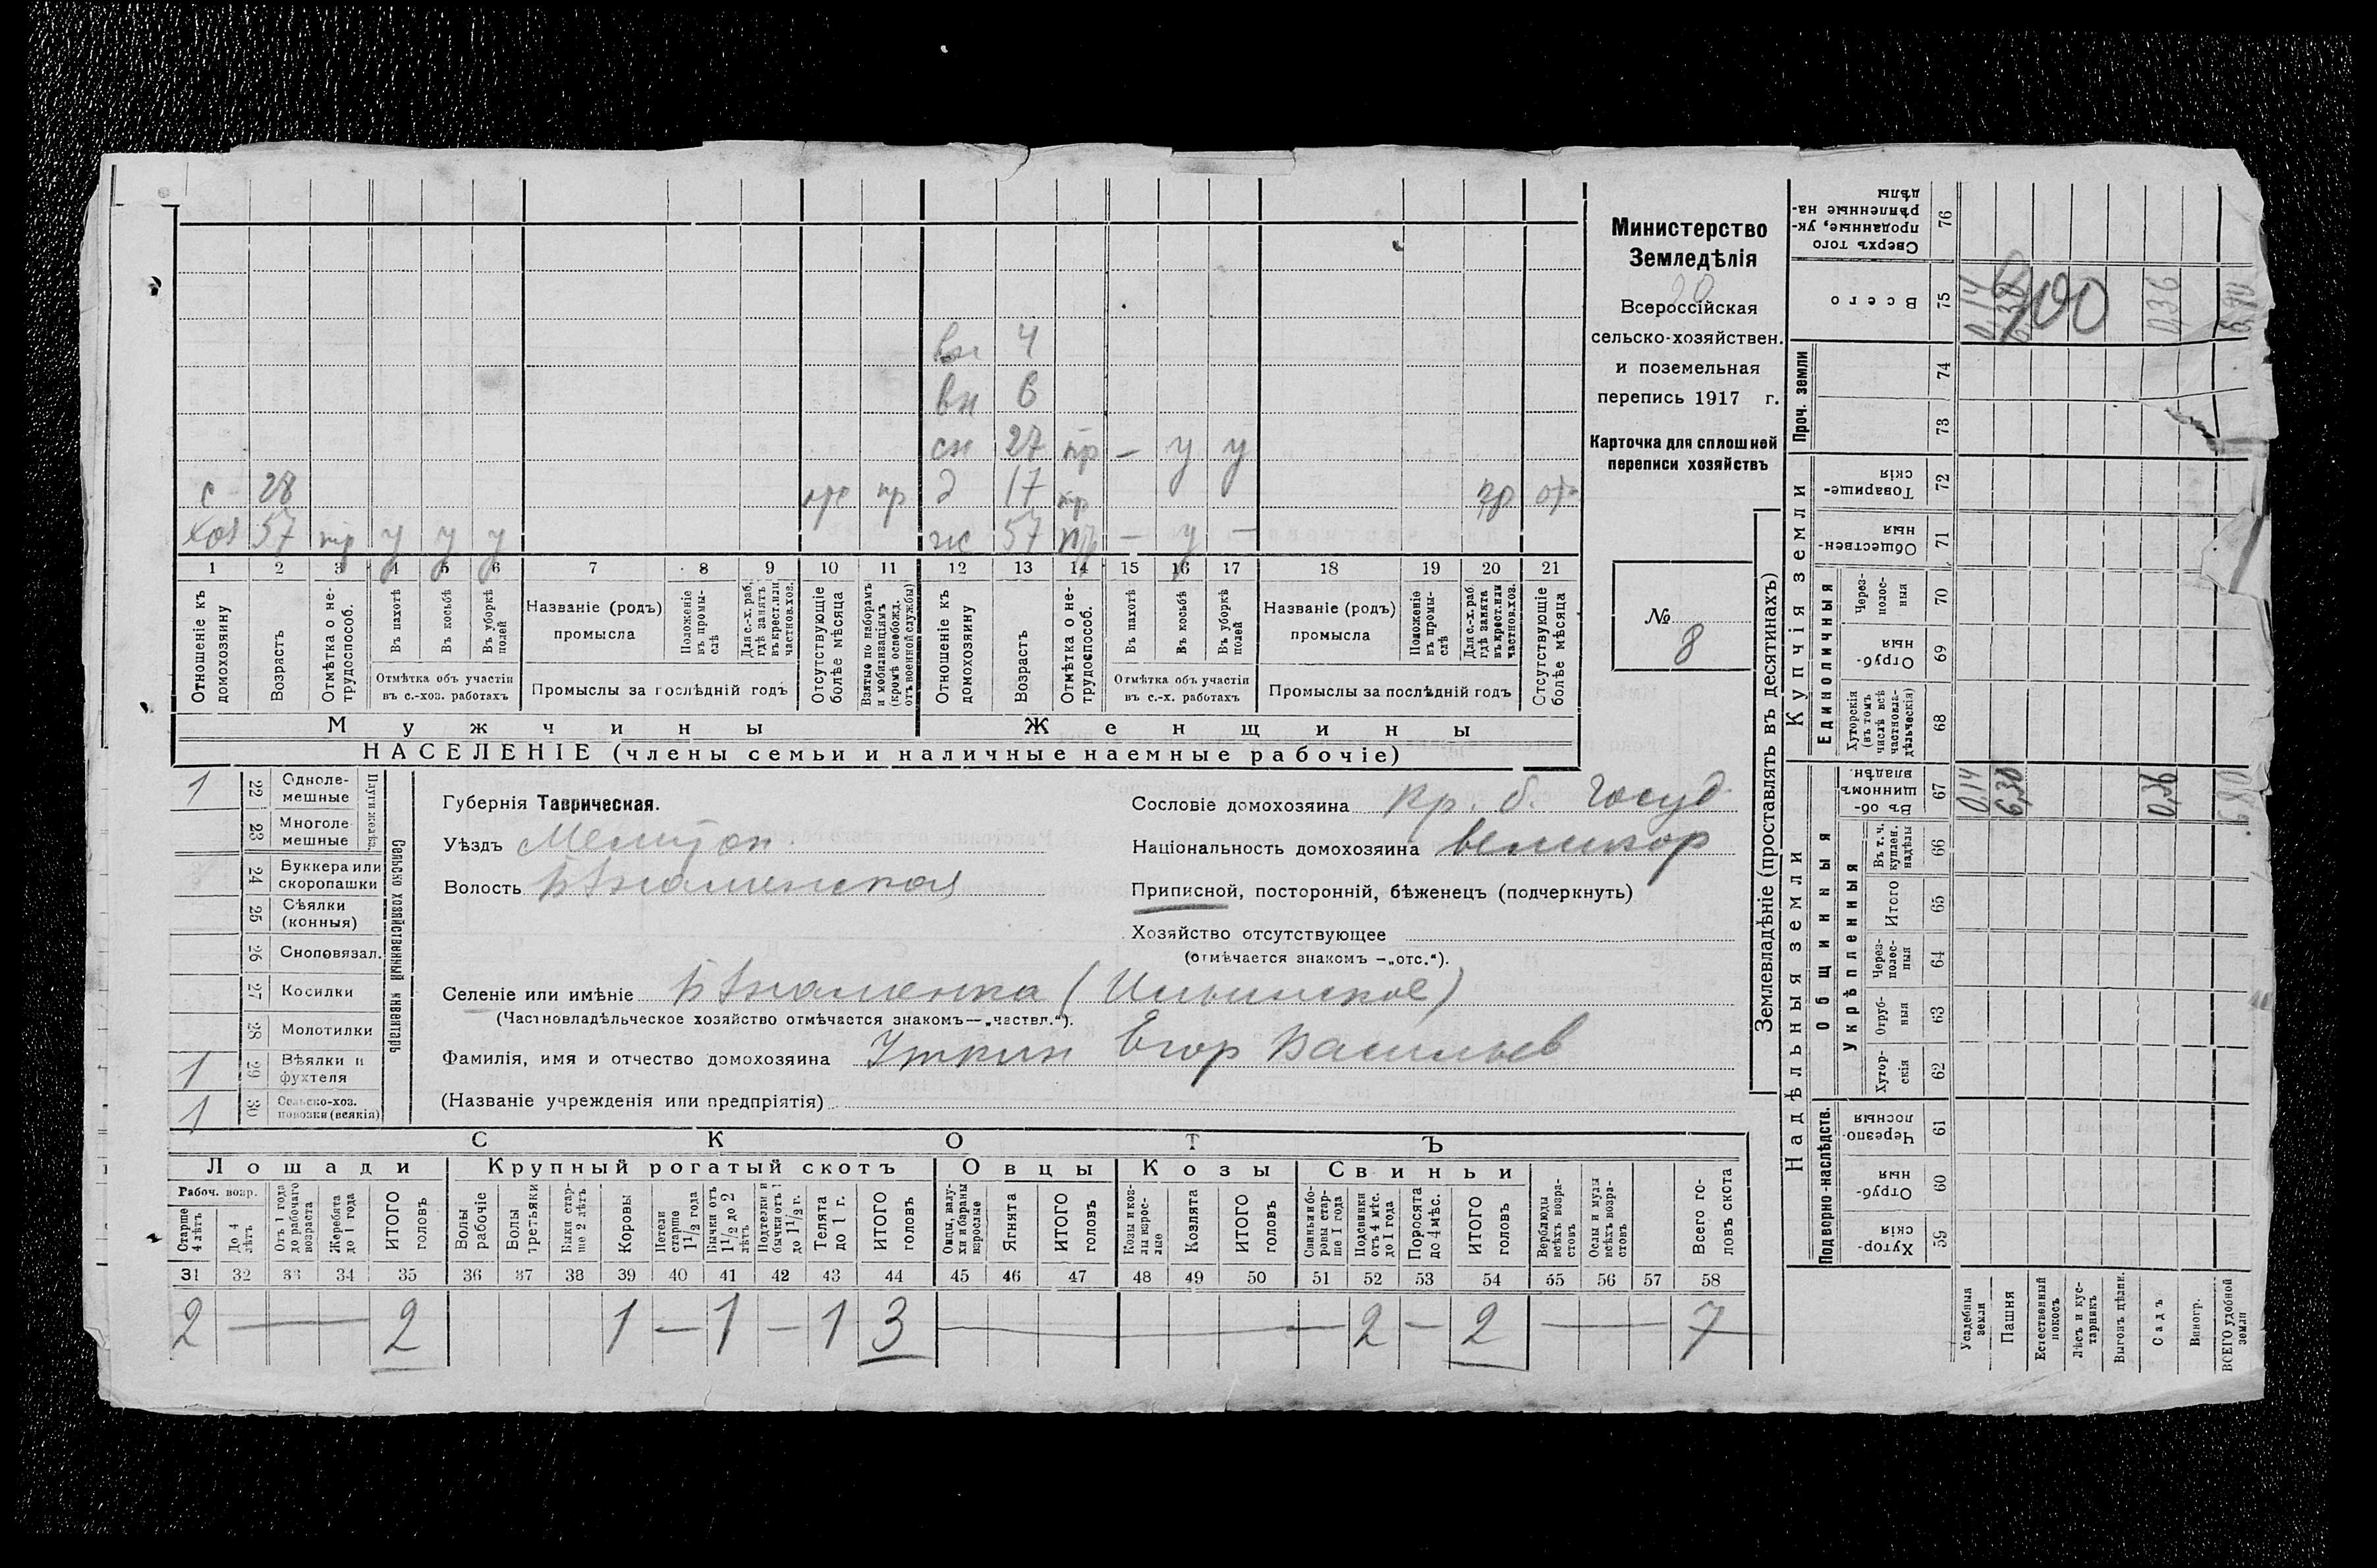 Министерство
Земледѣлія
20
Всероссійская
сельско-хозяйствен.
и поземельная
перепись 1917 г.
Карточка для сплошной
переписи хозяйствъ
№ 8
вн 4
вн 6
сн 27 тр — у у
с 28 отс пр д 17 тр
хоз 57 тр у у у ж 57 — у —
1 2 3 4 5 6 7 8 9 10 11 12 13 14 15 16 17 18 19 20 21
Отношеніе къ домохозяину
Возрастъ
Отмѣтка о нетрудоспособ.
Въ пахотѣ
Въ косьбѣ
Въ уборкѣ полей
Отмѣтка объ участіи
въ с.-хоз. работахъ
Названіе (родъ)
промысла
Положеніе въ промы-слѣ
Для с.-х. раб. гдѣ занятъ въ крест. или частнов. хоз.
Промыслы за послѣдній годъ
Отсутствующіе болѣе мѣсяца
Взятые по наборамъ и мобилизаціямъ (кромѣ освобожд. отъ военной службы)
Отношеніе къ домохозяину
Возрастъ
Отмѣтка о не-трудоспособ.
Въ пахотѣ
Въ косьбѣ
Въ уборкѣ полей
Отмѣтка объ участіи
въ с.-х. работахъ
Названіе (родъ)
промысла
Положеніе въ промы-слѣ
Для с.-х. раб. гдѣ занята въ крест. или частнов. хоз.
Промыслы за послѣдній годъ
Отсутствующіе болѣе мѣсяца
Мужчины Женщины
НАСЕЛЕНІЕ (члены семьи и наличные наемные рабочіе)
Сельско хозяйственный инвентарь
Плуги желѣз.
1 22 Одноле-мешные
23 Многоле-мешные
24 Буккера или скоропашки
25 Сѣялки (конныя)
26 Сноповязал.
27 Косилки
28 Молотилки
1 29 Вѣялки и фухтеля
1 30 Сельско-хоз. повозки (всякія)
Губернія Таврическая.
Уѣздъ Мелитоп.
Волость Б Знаменская
Сословіе домохозяина кр. б. Госуд.
Національность домохозяина великор
Приписной, посторонній, бѣженецъ (подчеркнуть)
Хозяйство отсутствующее
(отмѣчается знакомъ —„отс.“).
Селеніе или имѣніе Б Знаменка (Ильинское)
(Частновладѣльческое хозяйство отмѣчается знакомъ—„частвл.“).
Фамилія, имя и отчество домохозяина Уткин Егор Васильев
(Названіе учрежденія или предпріятія)
СКОТЪ
Лошади Крупный рогатый скотъ Овцы Козы Свиньи
Рабоч. возр.
Старше 4 лѣтъ
До 4 лѣтъ
Отъ 1 года до рабочаго возраста
Жеребята до 1 года
ИТОГО головъ
Волы рабочіе
Волы третьяки
Быки стар-ше 2 лѣтъ
Коровы
Нетели старше 1½ года
Бычки отъ 1½ до 2 лѣтъ
Подтелки и бычки отъ 1 до 1½ г.
Телята до 1 г.
ИТОГО головъ
Овцы, валу-хи и бараны взрослые
Ягнята
ИТОГО головъ
Козы и коз-лы взрос-лые
Козлята
ИТОГО головъ
Свиньи бо-ровы стар-ше 1 года
Подсвинки отъ 4 мѣс. до 1 года
Поросята до 4 мѣс.
ИТОГО головъ
Верблюды всѣхъ возра-стовъ
Ослы и мулы всѣхъ возра-стовъ
Всего го-ловъ скота
31 32 33 34 35 36 37 38 39 40 41 42 43 44 45 46 47 48 49 50 51 52 53 54 55 56 57 58
2 — 2 1 — 1 — 1 3 — 2 — 2 — 7
Землевладѣніе (проставлять въ десятинахъ)
Надѣльныя земли
Купчія земли
Проч. земли
Подворно-наслѣдств.
Общинныя
Укрѣпленныя
Единоличныя
Сверхъ того проданные, ук-рѣпленные на-дѣлы 76
Всего 75 0,14 6,30 0,36 6,80
700
74
73
Товарище-скія 72
Обществен-ныя 71
Через-полос-ныя 70
Отруб-ныя 69
Хуторскія (въ томъ числѣ всѣ частновла-дѣльческія) 68
Въ об-щинномъ владѣн. 67 0,14 6,30 0,36 6,80
Въ т. ч. куплен. надѣлы 66
Итого 65
Через-полос-ныя 64
Отруб-ныя 63
Хутор-скія 62
Черезпо-лосныя 61
Отруб-ныя 60
Хутор-скія 59
Усадебныя земли
Пашня
Естественный покосъ
Лѣсъ и кус-тарникъ
Выгонъ цѣлин.
Садъ
Виногр.
ВСЕГО удобной земли